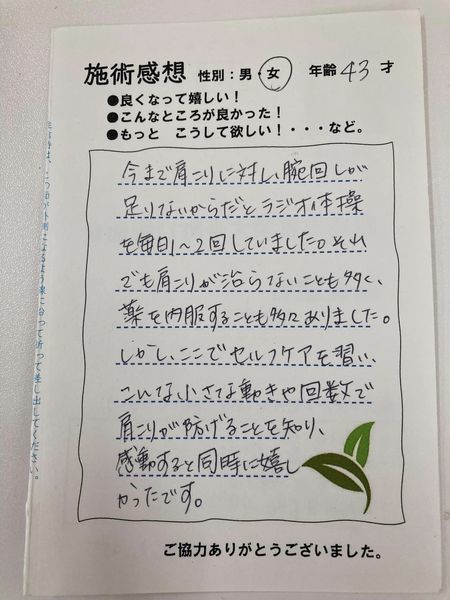 施術感想 性別：男・女 年齢 43 才
●良くなって嬉しい！
●こんなところが良かった！
●もっと こうして欲しい！・・・など。
今まで肩こりに対し、腕回しが
足りないからだとラジオ体操
を毎日1～2回していました。それ
でも肩こりが治らないことも多く、
薬を内服することも多々ありました。
しかし、ここでセルフケアを習い、
こんな小さな動きや回数で
肩こりが防げることを知り、
感動すると同時に嬉し
かったです。
ご協力ありがとうございました。